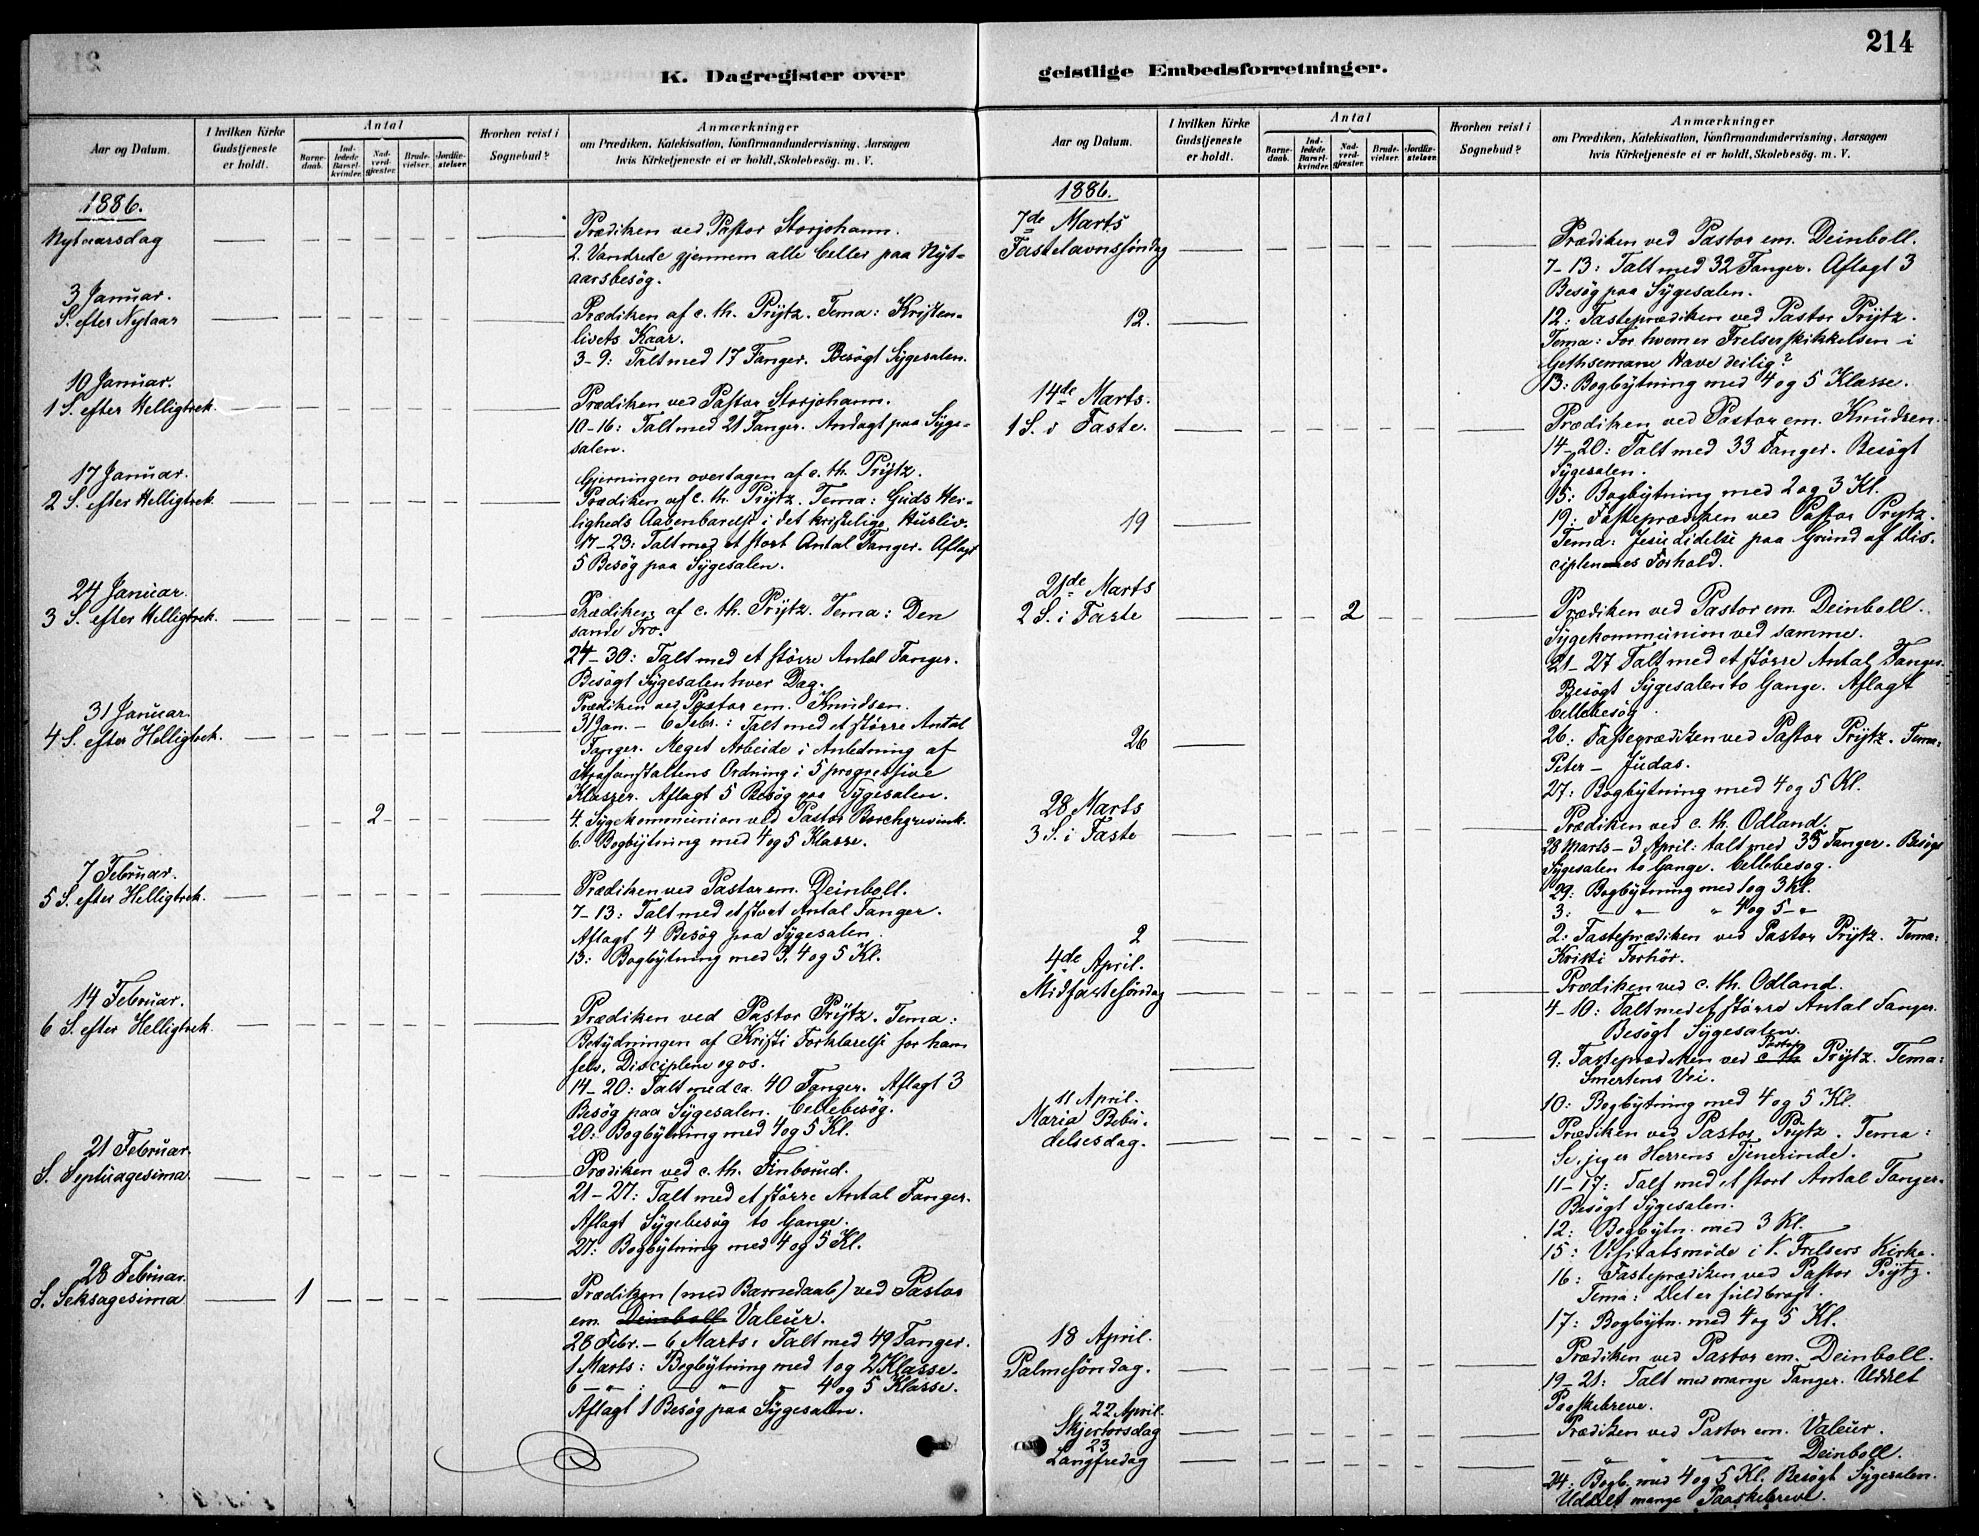 214
K. Dagregister over
geistlige Embedsforretninger.
Aar og Datum.
I hvilken Kirke
Gudstjeneste
er holdt.
Antal
Barne-
daab.
Ind-
ledede
Barsel-
kvinder.
Nad-
verd-
gjæster.
Brude-
vielser.
Jordfæ-
stelser.
Hvorhen reist i
Sognebud?
Anmærkninger
om Prædiken, Katekisation, Konfirmandundervisning, Aarsagen
hvis Kirketjeneste ei er holdt, Skolebesög. m. V.
1886.
Nytaarsdag
Prædiken ved Pastor Storjohann.
2. Vandrede gjennem alle Celler paa Nyt-
aarsbesøg.
3 Januar.
S. efter Nytaar
Prædiken af c. th. Prÿtz. Tema: Kristen-
livets Kaar.
3-9: Talt med 17 Fanger. Besøgt Sygesalen.
10 Januar.
1 S. efter Helligtrek.
Prædiken ved Pastor Storjohann.
10-16: Talt med 21 Fanger. Andagt paa Syge-
salen.
17 Januar.
2 S. efter Helligtrek.
Gjerningen overtagen af c. th. Prÿtz.
Prædiken af c. th. Prÿtz. Tema: Guds Her-
ligheds Aabenbarelse i det kristelige Husliv.
17-23: Talt med et stort Antal Fanger. Aflagt
5 Besøg paa Sygesalen.
24 Januar.
3 S. efter Helligtrek.
Prædiken af c. th. Prÿtz. Tema: Den
sande Tro.
24-30: Talt med et større Antal Fanger.
Besøgt Sygesalen hver Dag.
31 Januar.
4 S. efter Helligtrek.
Prædiken ved Pastor em. Knudsen.
31 Jan. - 6 Febr.: Talt med et større Antal
Fanger. Meget Arbeide i Anledning af
Strafanstaltens Ordning i 5 progressive
Klasser. Aflagt 5 Besøg paa Sygesalen.
2
4. Sygekommunion ved Pastor Borchgrevink.
6. Bogbytning med 4 og 5 Klasse.
7 Februar.
5 S. efter Helligtrek.
Prædiken ved Pastor em. Deinboll.
7-13: Talt med et stort Antal Fanger.
Aflagt 4 Besøg paa Sygesalen.
13: Bogbytning med 3, 4 og 5 Kl.
14 Februar.
6 S. efter Helligtrek.
Prædiken ved Pastor Prÿtz. Tema:
Betydningen af Kristi Forklarelse for ham
selv, Disciplene og os.
14-20: Talt med ca. 40 Fanger. Aflagt 3
Besøg paa Sygesalen. Cellebesøg.
20: Bogbytning med 4 og 5 Kl.
21 Februar.
S. Septuagesima.
Prædiken ved c. th. Finborud.
21-27: Talt med et større Antal Fanger.
Aflagt Sygebesøg to Gange.
27: Bogbytning med 4 og 5 Kl.
28 Februar.
S. Seksagesima
1
Prædiken (med Barnedaab) ved Pastor
em. Deinboll Valeur.
28 Febr. - 6 Marts: Talt med 49 Fanger.
1 Marts: Bogbytning med 1 og 2 Klasse.
6 - " - : - " - 4 og 5 Klasse.
Aflagt 1 Besøg paa Sygesalen.
Aar og Datum.
I hvilken Kirke
Gudstjeneste
er holdt.
Antal
Barne-
daab.
Ind-
ledede
Barsel-
kvinder.
Nad-
verd-
gjæster.
Brude-
vielser.
Jordfæ-
stelser.
Hvorhen reist i
Sognebud?
Anmærkninger
om Prædiken, Katekisation, Konfirmandundervisning, Aarsagen
hvis Kirketjeneste ei er holdt, Skolebesög. m. V.
1886.
7de Marts
Fastelavnssøndag
Prædiken ved Pastor em. Deinboll.
7-13: Talt med 32 Fanger. Aflagt 3
Besøg paa Sygesalen.
12.
12: Fasteprædiken ved Pastor Prÿtz.
Tema: For hvem er Frelserskikkelsen i
Gethsemane Have deilig?
13: Bogbytning med 4 og 5 Klasse.
14de Marts.
1 S. i Faste.
Prædiken ved Pastor em. Knudsen.
14-20: Talt med 33 Fanger. Besøgt
Sygesalen.
15: Bogbytning med 2 og 3 Kl.
19
19: Fasteprædiken ved Pastor Prÿtz.
Tema: Jesu Lidelse paa Grund af Dis-
ciplennes Forhold.
21de Marts
2 S. i Faste
2
Prædiken ved Pastor em. Deinboll.
Sygekommunion ved samme.
21-27 Talt med et større Antal Fanger.
Besøgt Sygesalen to Gange. Aflagt
Cellebesøg.
26
26: Fasteprædiken ved Pastor Prÿtz. Tema:
Peter - Judas.
27: Bogbytning med 4 og 5 Kl.
28 Marts
3 S. i Faste
Prædiken ved c. th. Odland.
28 Marts - 3 April: talt med 33 Fanger. Besøgt
Sygesalen to Gange. Cellebesøg.
29: Bogbytning med 1 og 3 Kl.
3: - " - " 4 og 5 - " -
2
2: Fasteprædiken ved Pastor Prÿtz. Tema:
Kristi Forhør.
4de April.
Midfastesøndag
Prædiken ved c. th. Odland.
4-10: Talt med et større Antal Fanger.
Besøgt Sygesalen.
9: Fasteprædiken ved c. th. Pastor Prÿtz. Tema:
Smertens Vei.
10: Bogbytning med 4 og 5 Kl.
11 April.
Maria Bebu-
delsesdag.
Prædiken ved Pastor Prÿtz. Tema:
Se, jeg er Herrens Tjenerinde.
11-17: Talt med et stort Antal Fanger.
Besøgt Sygesalen.
12: Bogbytn. med 3 Kl.
15: Visitatsmøde i V. Frelsers Kirke.
16: Fasteprædiken ved Pastor Prÿtz.
Tema: Det er fuldbragt.
17: Bogbytn. med 4 og 5 Kl.
18 April.
Palmesøndag.
Prædiken ved Pastor em. Deinboll.
19-21: Talt med mange Fanger. Uddelt
Paaskebreve.
22 April.
Skjertorsdag
Prædiken ved Pastor em. Valeur.
23
Langfredag
- " - " - " - " Deinboll.
24: Bogb. med 4 og 5 Kl. Besøgt Sygesalen.
Uddelt mange Paaskebreve.